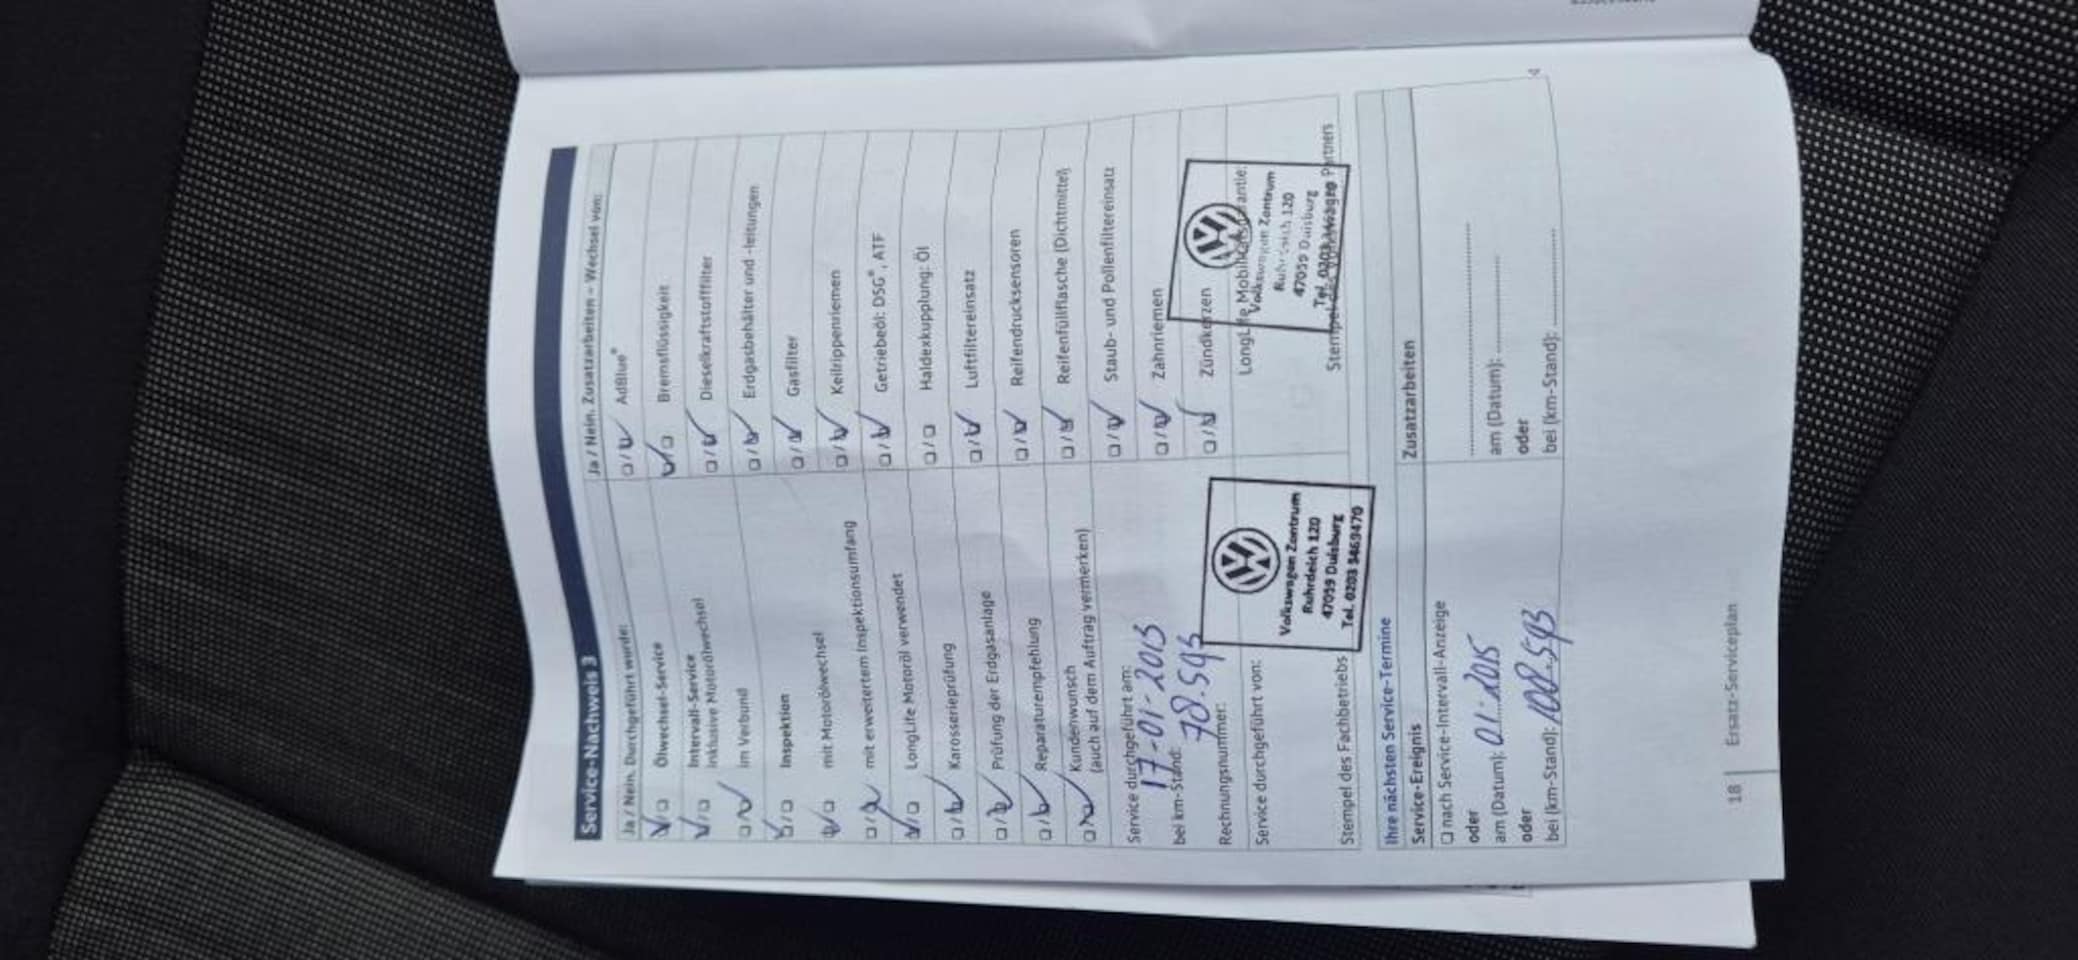 Service-Nachweis 3
Ja / Nein, Durchgeführt wurde:
Ölwechsel-Service
Intervall-Service
inklusive Motorölwechsel
im Verbund
Inspektion
mit Motorölwechsel
mit erweitertem Inspektionsumfang
LongLife Motoröl verwendet
Karosserieprüfung
Prüfung der Erdgasanlage
Reparaturempfehlung
Kundenwunsch
(auch auf dem Auftrag vermerken)
Service durchgeführt am:
17-01-2013
bei km-Stand:
78.593
Rechnungsnummer:
Service durchgeführt von:
Volkswagen Zentrum
Ruhrdeich 120
47059 Duisburg
Tel. 0203 3469470
Stempel des Fachbetriebs
Ja / Nein, Zusatzarbeiten – Wechsel von:
AdBlue®
Bremsflüssigkeit
Dieselkraftstofffilter
Erdgasbehälter und -leitungen
Gasfilter
Keilrippenriemen
Getriebeöl: DSG®, ATF
Haldexkupplung: Öl
Luftfiltereinsatz
Reifendrucksensoren
Reifenfüllflasche (Dichtmittel)
Staub- und Pollenfiltereinsatz
Zahnriemen
Zündkerzen
LongLife Mobilitätsgarantie:
Volkswagen Zentrum
Ruhrdeich 120
47059 Duisburg
Tel. 0203 3469470
Stempel des Volkswagen Partners
Ihre nächsten Service-Termine
Service-Ereignis
nach Service-Intervall-Anzeige
oder
am (Datum): 01-2015
oder
bei (km-Stand): 108.593
Zusatzarbeiten
am (Datum):
oder
bei (km-Stand):
18 | Ersatz-Serviceplan